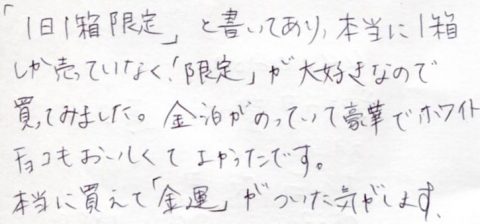 「1日1箱限定」と書いてあり、本当に1箱
しか売っていなく！「限定」が大好きなので
買ってみました。金泊がのっていて豪華でホワイト
チョコもおいしくてよかったです。
本当に買えて「金運」がついた気がします。